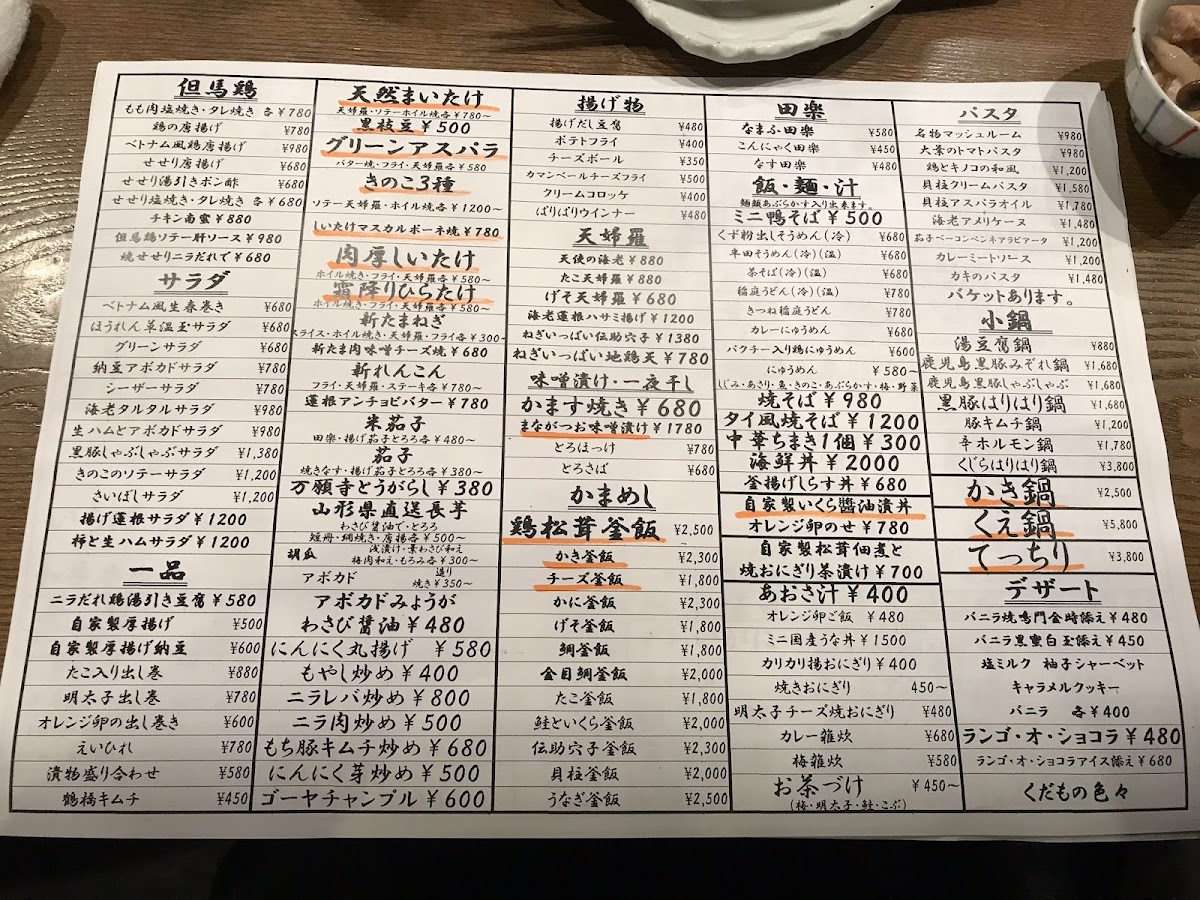 但馬鶏
もも肉塩焼き・タレ焼き 各¥780
鶏の唐揚げ ¥780
ベトナム風鶏唐揚げ ¥980
せせり唐揚げ ¥680
せせり湯引きポン酢 ¥680
せせり塩焼き・タレ焼き 各¥680
チキン南蛮¥880
但馬鶏ソテー肝ソース¥980
焼せせりニラだれで¥680
サラダ
ベトナム風生春巻き ¥680
ほうれん草温玉サラダ ¥680
グリーンサラダ ¥680
納豆アボカドサラダ ¥780
シーザーサラダ ¥780
海老タルタルサラダ ¥980
生ハムとアボカドサラダ ¥980
黒豚しゃぶしゃぶサラダ ¥1,380
きのこのソテーサラダ ¥1,200
さいぼしサラダ ¥1,200
揚げ蓮根サラダ¥1200
柿と生ハムサラダ¥1200
一品
ニラだれ鶏湯引き豆腐¥580
自家製厚揚げ ¥500
自家製厚揚げ納豆 ¥600
たこ入り出し巻 ¥880
明太子出し巻 ¥780
オレンジ卵の出し巻き ¥600
えいひれ ¥780
漬物盛り合わせ ¥580
鶴橋キムチ ¥450
天然まいたけ
天婦羅・ソテーホイル焼各¥780〜
黒枝豆¥500
グリーンアスパラ
バター焼・フライ・天婦羅各¥580〜
きのこ3種
ソテー天婦羅・ホイル焼各¥1200〜
しいたけマスカルポーネ焼¥780
肉厚しいたけ
ホイル焼き・フライ・天婦羅各¥580〜
霜降りひらたけ
ホイル焼き・フライ・天婦羅各¥580〜
新たまねぎ
スライス・ホイル焼き・天婦羅・フライ各¥300〜
新たま肉味噌チーズ焼¥680
新れんこん
フライ・天婦羅・ステーキ各¥780〜
蓮根アンチョビバター¥780
米茄子
田楽・揚げ茄子とろろ各¥480〜
茄子
焼きなす・揚げ茄子とろろ各¥380〜
万願寺とうがらし¥380
山形県直送長芋
わさび醤油で・とろろ
短冊・網焼き・唐揚各¥500〜
胡瓜 浅漬け・素わさび和え
梅肉和え・もろみ各¥300〜
アボカド 造り
焼き¥350〜
アボカドみょうが
わさび醤油¥480
にんにく丸揚げ ¥580
もやし炒め¥400
ニラレバ炒め¥800
ニラ肉炒め¥500
もち豚キムチ炒め¥680
にんにく芽炒め¥500
ゴーヤチャンプル¥600
揚げ物
揚げだし豆腐 ¥480
ポテトフライ ¥400
チーズボール ¥350
カマンベールチーズフライ ¥500
クリームコロッケ ¥400
ぱりぱりウインナー ¥480
天婦羅
天使の海老¥880
たこ天婦羅¥880
げそ天婦羅¥680
海老蓮根ハサミ揚げ¥1200
ねぎいっぱい伝助穴子¥1380
ねぎいっぱい地鶏天¥780
味噌漬け・一夜干し
かます焼き¥680
まながつお味噌漬け¥1780
とろほっけ ¥780
とろさば ¥680
かまめし
鶏松茸釜飯 ¥2,500
かき釜飯 ¥2,300
チーズ釜飯 ¥1,800
かに釜飯 ¥2,300
げそ釜飯 ¥1,800
鯛釜飯 ¥1,800
金目鯛釜飯 ¥2,000
たこ釜飯 ¥1,800
鮭といくら釜飯 ¥2,000
伝助穴子釜飯 ¥2,300
貝柱釜飯 ¥2,000
うなぎ釜飯 ¥2,500
田楽
なまふ田楽 ¥580
こんにゃく田楽 ¥450
なす田楽 ¥480
飯・麺・汁
麺類あぶらかす入り出来ます。
ミニ鴨そば¥500
くず粉出しそうめん(冷) ¥680
半田そうめん(冷)(温) ¥680
茶そば(冷)(温) ¥680
稲庭うどん(冷)(温) ¥780
きつね稲庭うどん ¥780
カレーにゅうめん ¥680
パクチー入り鶏にゅうめん ¥600
にゅうめん ¥580〜
しじみ・あさり・魚・きのこ・あぶらかす・梅・野菜
焼そば¥980
タイ風焼そば¥1200
中華ちまき1個¥300
海鮮丼¥2000
釜揚げしらす丼¥680
自家製いくら醬油漬丼
オレンジ卵のせ¥780
自家製松茸佃煮と
焼おにぎり茶漬け¥700
あおさ汁¥400
オレンジ卵ご飯 ¥480
ミニ国産うな丼¥1500
カリカリ揚おにぎり¥400
焼きおにぎり 450〜
明太子チーズ焼おにぎり ¥480
カレー雑炊 ¥680
梅雑炊 ¥580
お茶づけ ¥450〜
(梅・明太子・鮭・こぶ)
パスタ
名物マッシュルーム ¥980
大葉のトマトパスタ ¥980
鶏とキノコの和風 ¥1,200
貝柱クリームパスタ ¥1,580
貝柱アスパラオイル ¥1,780
海老アメリケーヌ ¥1,480
茄子ベーコンペンネアラビアータ ¥1,200
カレーミートソース ¥1,200
カキのパスタ ¥1,480
バケットあります。
小鍋
湯豆腐鍋 ¥880
鹿児島黒豚みぞれ鍋 ¥1,680
鹿児島黒豚しゃぶしゃぶ ¥1,680
黒豚はりはり鍋 ¥1,680
豚キムチ鍋 ¥1,200
辛ホルモン鍋 ¥1,780
くじらはりはり鍋 ¥3,800
かき鍋 ¥2,500
くえ鍋 ¥5,800
てっちり ¥3,800
デザート
バニラ焼鳴門金時添え¥480
バニラ黒蜜白玉添え¥450
塩ミルク 柚子シャーベット
キャラメルクッキー
バニラ 各¥400
ランゴ・オ・ショコラ¥480
ランゴ・オ・ショコラアイス添え¥680
くだもの色々